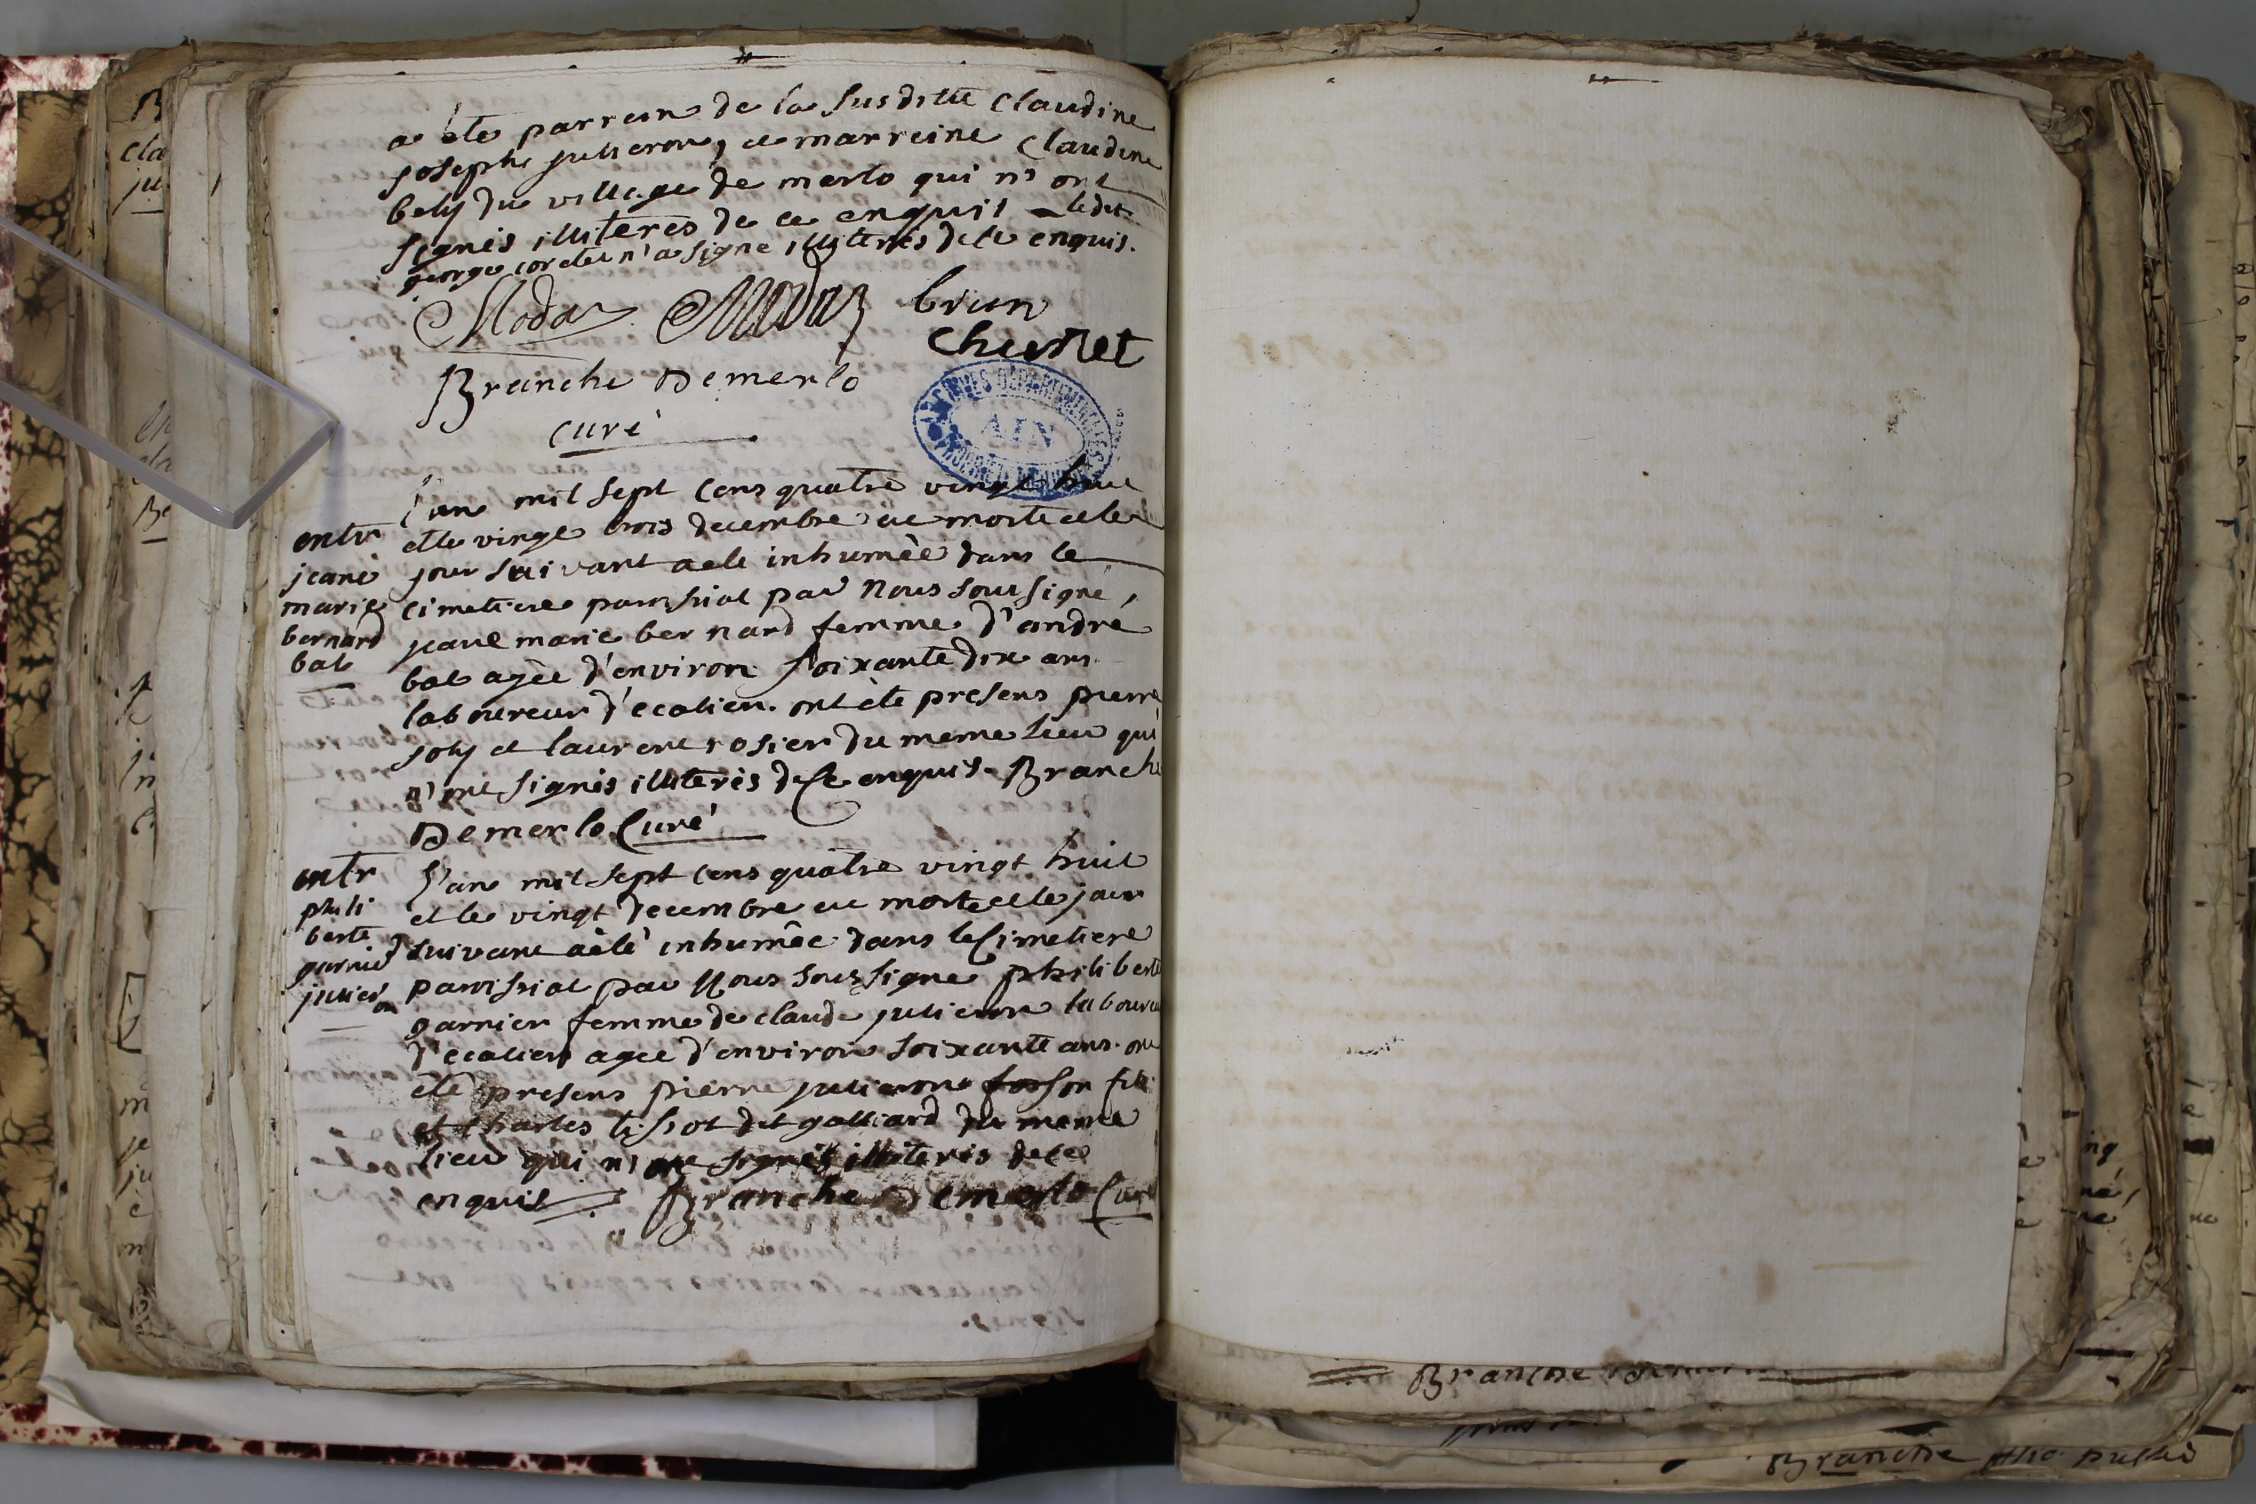 a été parrein de la susditte Claudine
joseph juilleron, et marreine Claudine
bely du village de merlo qui n'ont
signés illiteres de ce enquis - ledit
george cordet n'a signé illiteres de ce enquis.
Modaz Modaz brun
Chustet
Branche Demerlo
curé
ARCHIVES DÉPARTEMENTALES
AIN
l'an mil sept cens quatre vingt huit
et le vingt trois decembre est morte et le
jour suivant a été inhumée dans le
cimetiere paroissial par Nous soussigné,
jeane marie bernard femme d'andré
bat agée d'environ soixante dix ans
laboureur d'ecotieu. ont été presens pierre
joly et laurent rosier du meme lieu qui
n'ont signés illiterés de ce enquis. Branche
Demerlo Curé
entr
jeane
marie
bernard
bat
l'an mil sept cens quatre vingt huit
et le vingt decembre est morte et le jour
suivant a été inhumée dans le Cimetiere
paroissial par Nous soussigné philiberte
garnier femme de claude julieron laboureur
d'ecotieu agée d'environ soixante ans. ont
été presens pierre julieron son fils
et Charles tissot dit galliard du meme
lieu qui n'ont signés illiteris de ce
enquis Branche Demerlo Curé
entr
phili
berte
garnier
julier
on
Branche
Branche